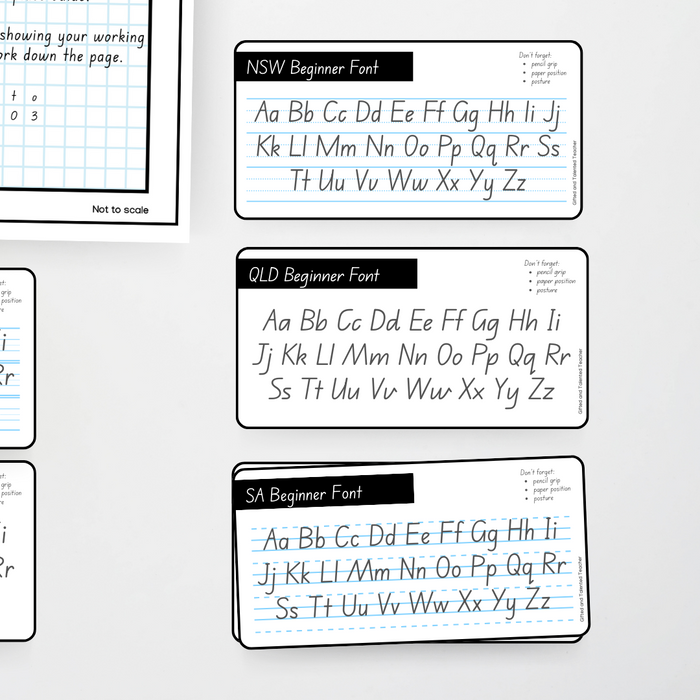 showing your working
work down the page.
t o
0 3
Not to scale
grip
position
i
Rr
grip
position
i
Rr
NSW Beginner Font
Don't forget:
• pencil grip
• paper position
• posture
Aa Bb Cc Dd Ee Ff Gg Hh Ii Jj
Kk Ll Mm Nn Oo Pp Qq Rr Ss
Tt Uu Vv Ww Xx Yy Zz
Gifted and Talented Teacher
QLD Beginner Font
Don't forget:
• pencil grip
• paper position
• posture
Aa Bb Cc Dd Ee Ff Gg Hh Ii
Jj Kk Ll Mm Nn Oo Pp Qq Rr
Ss Tt Uu Vv Ww Xx Yy Zz
Gifted and Talented Teacher
SA Beginner Font
Don't forget:
• pencil grip
• paper position
• posture
Aa Bb Cc Dd Ee Ff Gg Hh Ii
Jj Kk Ll Mm Nn Oo Pp Qq Rr
Ss Tt Uu Vv Ww Xx Yy Zz
Gifted and Talented Teacher